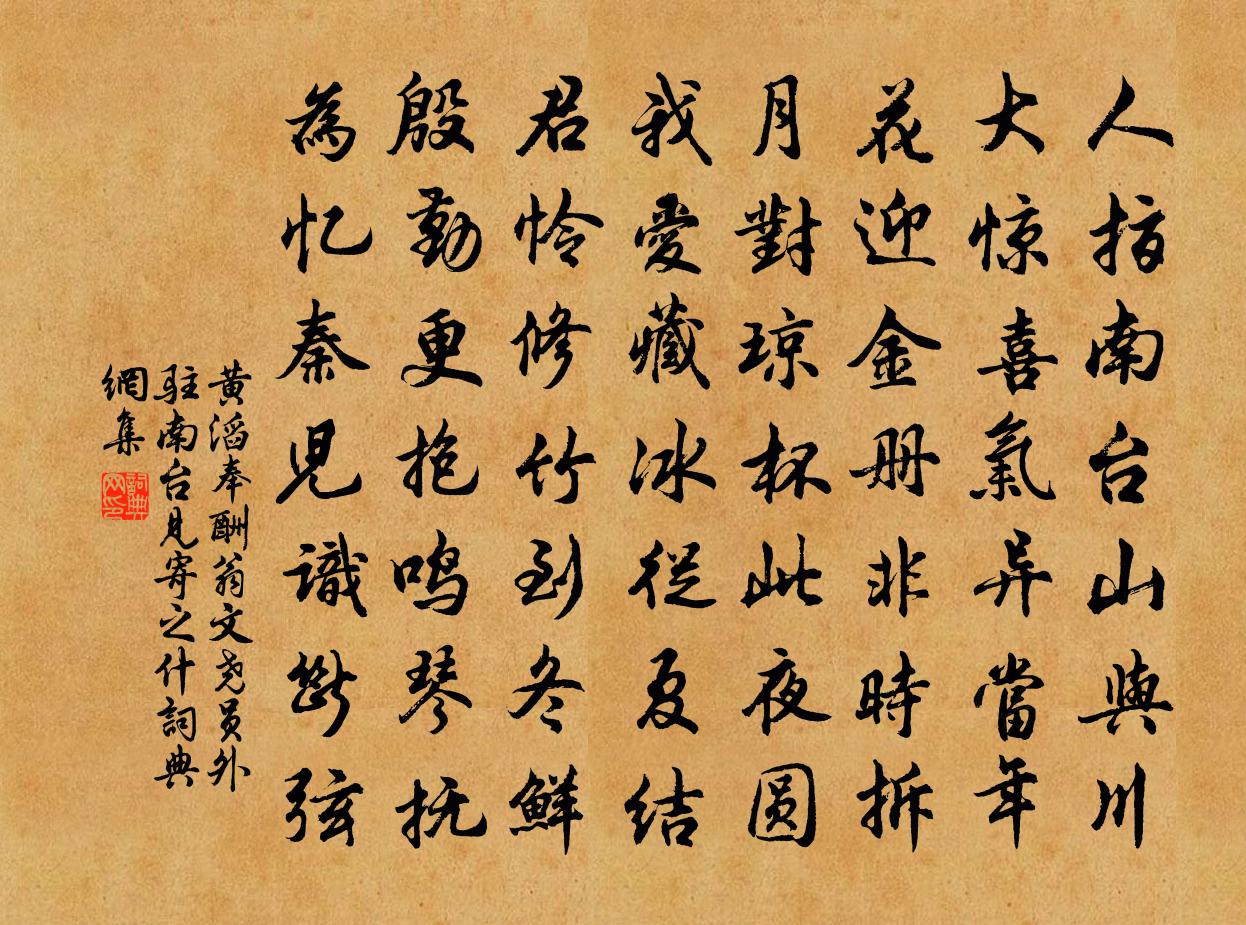 人指南台山與川
大惊喜氣异當年
花迎金册非時拆
月對琼杯此夜圆
我愛藏冰從夏结
君怜修竹到冬鮮
殷勤更抱鸣琴抚
為忆秦児識断弦
黄滔奉酬翁文尧员外
驻南台见寄之什詞典
網集
詞典
网印